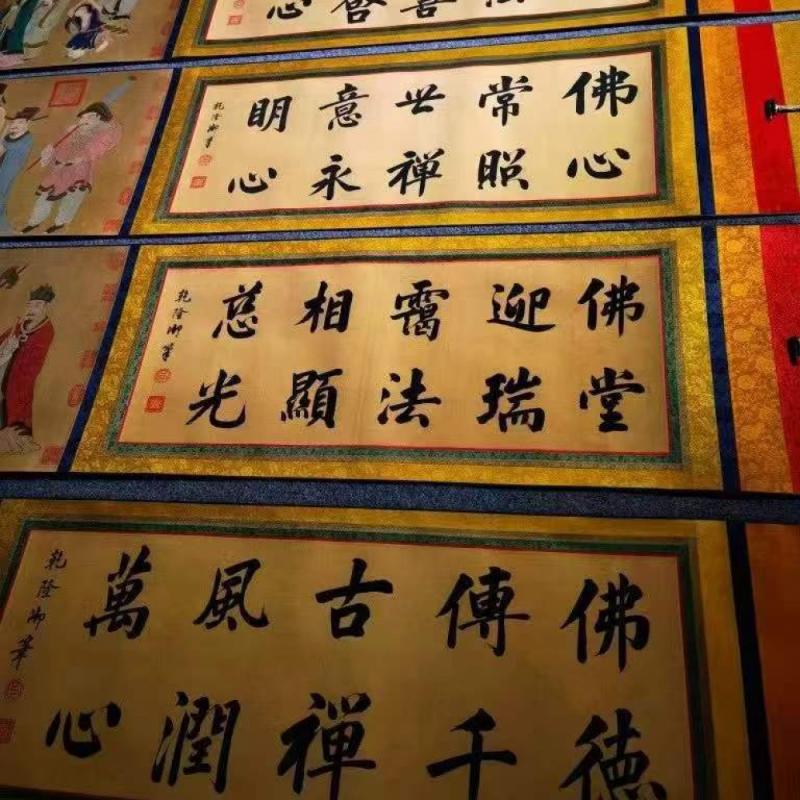 善
心
佛心
常照
世禪
意永
明心
乾隆御筆
佛堂
迎瑞
靄法
相顯
慈光
乾隆御筆
佛德
傳千
古禪
風潤
萬心
乾隆御筆